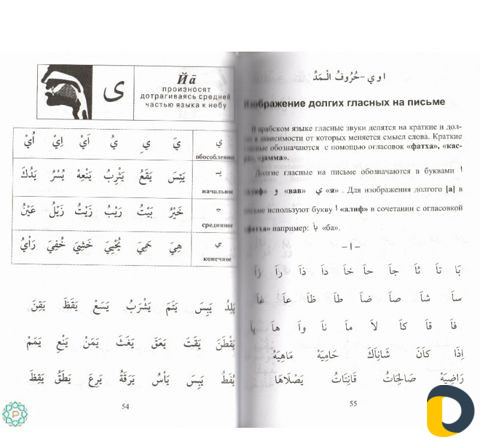 Йā
произносят
дотрагиваясь средней
частью языка к небу
ى
ي يَ يِ يُ اَيْ اِيْ اُيْ
обособленно
يـ يَبِسَ يَقَعُ يَثْرِبُ يَنْعِهِ يُسْرُ يَدُكَ
начальное
ـيـ خَيْرُ بَيْتُ رَيْبُ زَيْتُ زَيْلُ عَيْنُ
среднее
ي هِيَ حَمِيَ يُحْيِيَ خَشِيَ خُفِيَ رَأْيُ
конечное
يَلِدُ يَبِسَ يَتَمَ يَشْرَبُ يَسَعُ يَقَظَ يَقِنَ
يَقْطَنَ يَقَتَ يَعَقَ يَغَثَ يَمَنْ يَنَعِ يَمَمْ
يُقَظُ يَبِسَ يَأْسُ يَرَقَةُ يَرِعَ يَطَقُ يَقِظَ
54
ا و ي - حُرُوفُ الْمَدِّ
Изображение долгих гласных на письме
В арабском языке гласные звуки делятся на краткие и долгие, в зависимости от которых меняется смысл слова. Краткие
обозначаются с помощью огласовок «фатха», «кас-
Долгие гласные на письме обозначаются в буквами ا
«алиф» و «вав» ي «я». Для изображения долгого [а] в
письме используют букву ا «алиф» в сочетании с огласовкой
«фатха» например: بَا «ба».
– ا –
بَا تَا ثَا جَا حَا خَا دَا ذَا رَا زَا
سَا شَا صَا ضَا طَا ظَا عَا غَا
فَا قَا كَا لَا مَا نَا وَا هَا يَا
إِذَا كَانَ شَانِئَكَ حَامِيَةً مَاهِيَهْ
رَاضِيَةٍ صَالِحَاتُ قَانِتَاتُ يَصْلَاهَا
55